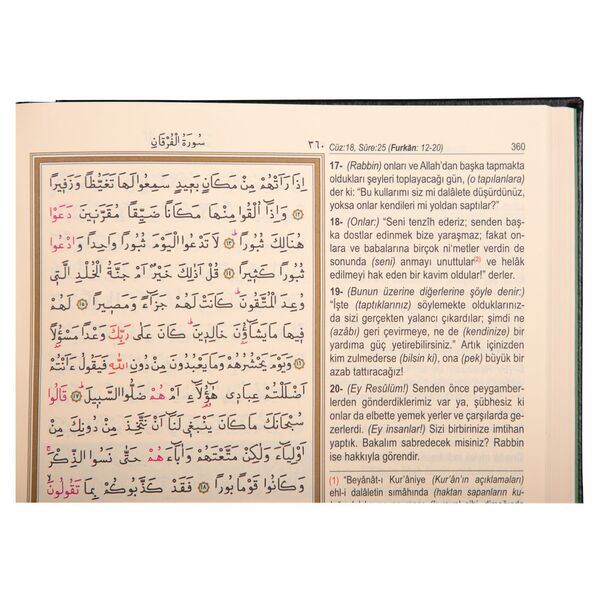 سُورَةُ الْفُرْقَانِ
٣٦٠
اِذَا رَاَتْهُمْ مِنْ مَكَانٍ بَع۪يدٍ سَمِعُوا لَهَا تَغَيُّظًا وَزَف۪يرًا
﴿١٢﴾ وَاِذَٓا اُلْقُوا مِنْهَا مَكَانًا ضَيِّقًا مُقَرَّن۪ينَ دَعَوْا
هُنَالِكَ ثُبُورًا ﴿١٣﴾ لَا تَدْعُوا الْيَوْمَ ثُبُورًا وَاحِدًا وَادْعُوا
ثُبُورًا كَث۪يرًا ﴿١٤﴾ قُلْ اَذٰلِكَ خَيْرٌ اَمْ جَنَّةُ الْخُلْدِ الَّت۪ي
وُعِدَ الْمُتَّقُونَ كَانَتْ لَهُمْ جَزَٓاءً وَمَص۪يرًا ﴿١٥﴾ لَهُمْ
ف۪يهَا مَا يَشَٓاؤُ۫نَ خَالِد۪ينَ كَانَ عَلٰى رَبِّكَ وَعْدًا مَسْؤُ۫لًا
﴿١٦﴾ وَيَوْمَ يَحْشُرُهُمْ وَمَا يَعْبُدُونَ مِنْ دُونِ اللّٰهِ فَيَقُولُ ءَاَنْتُمْ
اَضْلَلْتُمْ عِبَاد۪ي هٰٓؤُ۬لَٓاءِ اَمْ هُمْ ضَلُّوا السَّب۪يلَ ﴿١٧﴾ قَالُوا
سُبْحَانَكَ مَا كَانَ يَنْبَغ۪ي لَنَٓا اَنْ نَتَّخِذَ مِنْ دُونِكَ مِنْ
اَوْلِيَٓاءَ وَلٰكِنْ مَتَّعْتَهُمْ وَاٰبَٓاءَهُمْ حَتّٰى نَسُوا الذِّكْرَ
وَكَانُوا قَوْمًا بُورًا ﴿١٨﴾ فَقَدْ كَذَّبُوكُمْ بِمَا تَقُولُونَ
Cüz:18, Sûre:25 (Furkān: 12-20) 360
17- (Rabbin) onları ve Allah'dan başka tapmakta
oldukları şeyleri toplayacağı gün, (o tapılanlara)
der ki: "Bu kullarımı siz mi dalâlete düşürdünüz,
yoksa onlar kendileri mi yoldan saptılar?"
18- (Onlar:) "Seni tenzîh ederiz; senden baş-
ka dostlar edinmek bize yaraşmaz; fakat on-
lara ve babalarına birçok ni'metler verdin de
sonunda (seni) anmayı unuttular(2) ve helâk
edilmeyi hak eden bir kavim oldular!" derler.
19- (Bunun üzerine diğerlerine şöyle denir:)
"İşte (taptıklarınız) söylemekte olduklarınız-
da sizi gerçekten yalancı çıkardılar; şimdi ne
(azâbı) geri çevirmeye, ne de (kendinize) bir
yardıma güç yetirebilirsiniz." Artık içinizden
kim zulmederse (bilsin ki), ona (pek) büyük bir
azab tattıracağız!
20- (Ey Resûlüm!) Senden önce peygamber-
lerden gönderdiklerimiz var ya, şübhesiz ki
onlar da elbette yemek yerler ve çarşılarda ge-
zerlerdi. (Ey insanlar!) Sizi birbirinize imtihan
yaptık. Bakalım sabredecek misiniz? Rabbin
ise hakkıyla görendir.
(1) "Beyânât-ı Kur'âniye (Kur'ân'ın açıklamaları)
ehl-i dalâletin sımâhında (haktan sapanların ku-